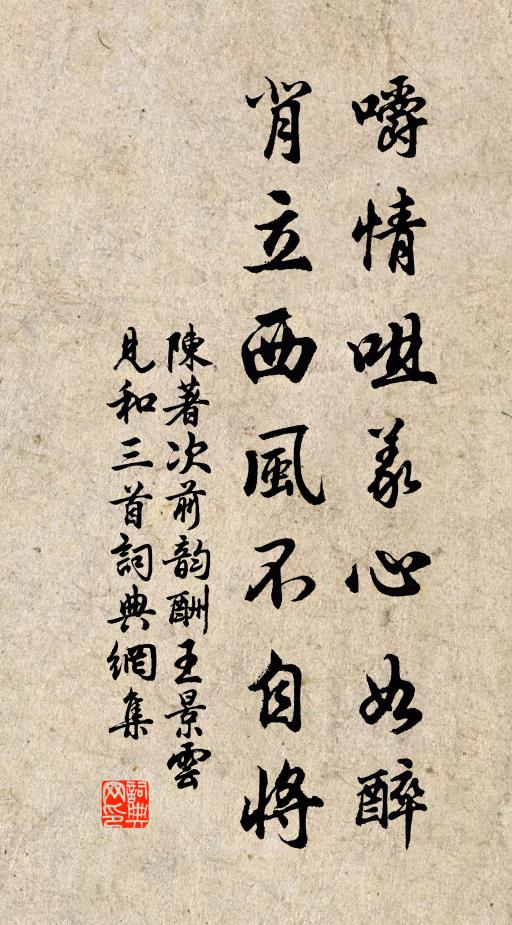 嚼情咀義心如醉
背立西風不自將
陳著次前韵酬王景雲
見和三首詞典網集
詞典網印